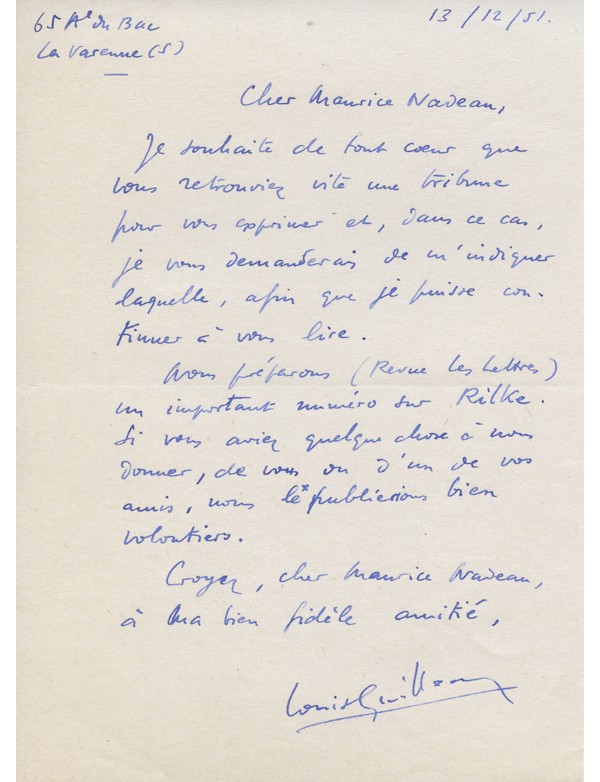 65 Ae du Bac
13/12/51.
La Varenne (S)
Cher Maurice Nadeau,
Je souhaite de tout cœur que
vous retrouviez vite une tribune
pour vous exprimer et, dans ce cas,
je vous demanderais de m'indiquer
laquelle, afin que je puisse con-
tinuer à vous lire.
Nous préparons (Revue Les Lettres)
un important numéro sur Rilke.
Si vous aviez quelque chose à nous
donner, de vous ou d'un de vos
amis, nous le publierions bien
volontiers.
Croyez, cher Maurice Nadeau,
à ma bien fidèle amitié,
Louis Guillaume